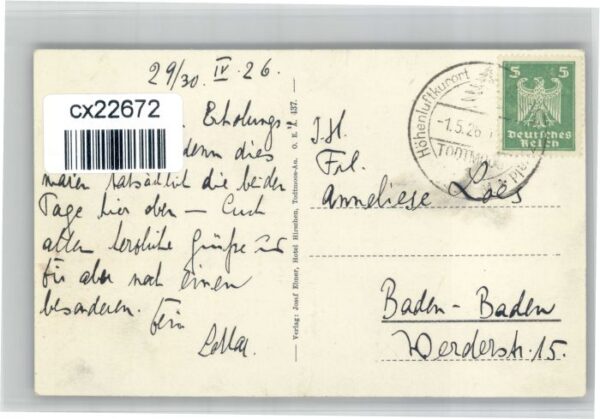 29/30. IV. 26.
cx22672
Erholungs-
denn dies
waren tatsächlich die beiden
Tage hier oben — Euch
allen herzliche Grüße und
für aber noch einen
besonderen.
Lothar.
Verlag: Josef Ebner, Hotel Hirschen, Todtmoos-Au. O. E. A. 437.
Höhenluftkurort
-1.5.26
TODTMOOS
5 5
Deutsches
Reich
I.H.
Frl.
Anneliese Loës
Baden-Baden
Werderstr. 15.